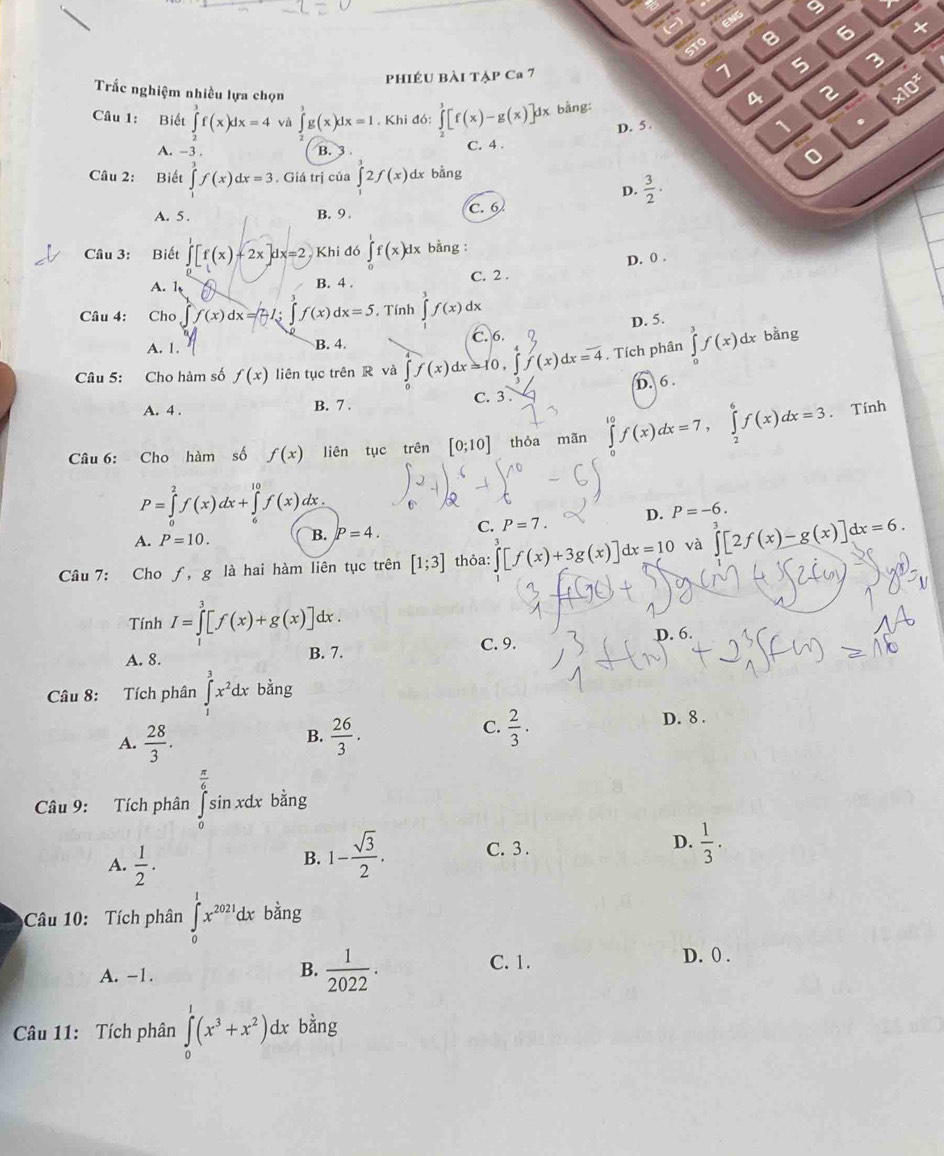 PHIẾU BÀI TẬP Ca 7
Trắc nghiệm nhiều lựa chọn
Câu 1: Biết ∫₂³ f(x)dx = 4 và ∫₂³ g(x)dx = 1. Khi đó: ∫₂³ [f(x) − g(x)]dx bằng:
A. −3. B. 3. C. 4. D. 5.
Câu 2: Biết ∫₁³ f(x)dx = 3. Giá trị của ∫₁³ 2f(x)dx bằng
A. 5. B. 9. C. 6. D. 3/2.
Câu 3: Biết ∫₀¹ [f(x) + 2x]dx = 2, Khi đó ∫₀¹ f(x)dx bằng :
A. 1. B. 4. C. 2. D. 0.
Câu 4: Cho ∫₀¹ f(x)dx = −1; ∫₀³ f(x)dx = 5. Tính ∫₁³ f(x)dx
A. 1. B. 4. C. 6. D. 5.
Câu 5: Cho hàm số f(x) liên tục trên R và ∫₀⁴ f(x)dx = 10, ∫₃⁴ f(x)dx = 4. Tích phân ∫₀³ f(x)dx bằng
A. 4. B. 7. C. 3. D. 6.
Câu 6: Cho hàm số f(x) liên tục trên [0;10] thỏa mãn ∫₀¹⁰ f(x)dx = 7, ∫₂⁶ f(x)dx = 3. Tính
P = ∫₀² f(x)dx + ∫₆¹⁰ f(x)dx.
A. P = 10. B. P = 4. C. P = 7. D. P = −6.
Câu 7: Cho f, g là hai hàm liên tục trên [1;3] thỏa: ∫₁³ [f(x) + 3g(x)]dx = 10 và ∫₁³ [2f(x) − g(x)]dx = 6.
Tính I = ∫₁³ [f(x) + g(x)]dx.
A. 8. B. 7. C. 9. D. 6.
Câu 8: Tích phân ∫₁³ x²dx bằng
A. 28/3. B. 26/3. C. 2/3. D. 8.
Câu 9: Tích phân ∫₀^(π/6) sin xdx bằng
A. 1/2. B. 1 − √3/2. C. 3. D. 1/3.
Câu 10: Tích phân ∫₀¹ x²⁰²¹dx bằng
A. −1. B. 1/2022. C. 1. D. 0.
Câu 11: Tích phân ∫₀¹ (x³ + x²)dx bằng
(−) ENG 9
STO 8 6 +
7 5 3
4 2 ×10ˣ
1 •
0